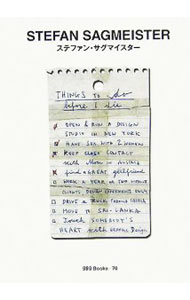 STEFAN SAGMEISTER
ステファン・サグマイスター
THINGS to do
before I die
OPEN & RUN A DESIGN
STUDIO IN NEW YORK
HAVE SEX WITH 2 WOMEN
KEEP CLOSE CONTACT
with Mom in Austria
find a GREAT girlfriend
WORK A YEAR
DRIVE A
MOVE TO SRI-LANKA
TOUCH SOMEBODY'S
HEART with GRAPHIC Design
ggg Books 70